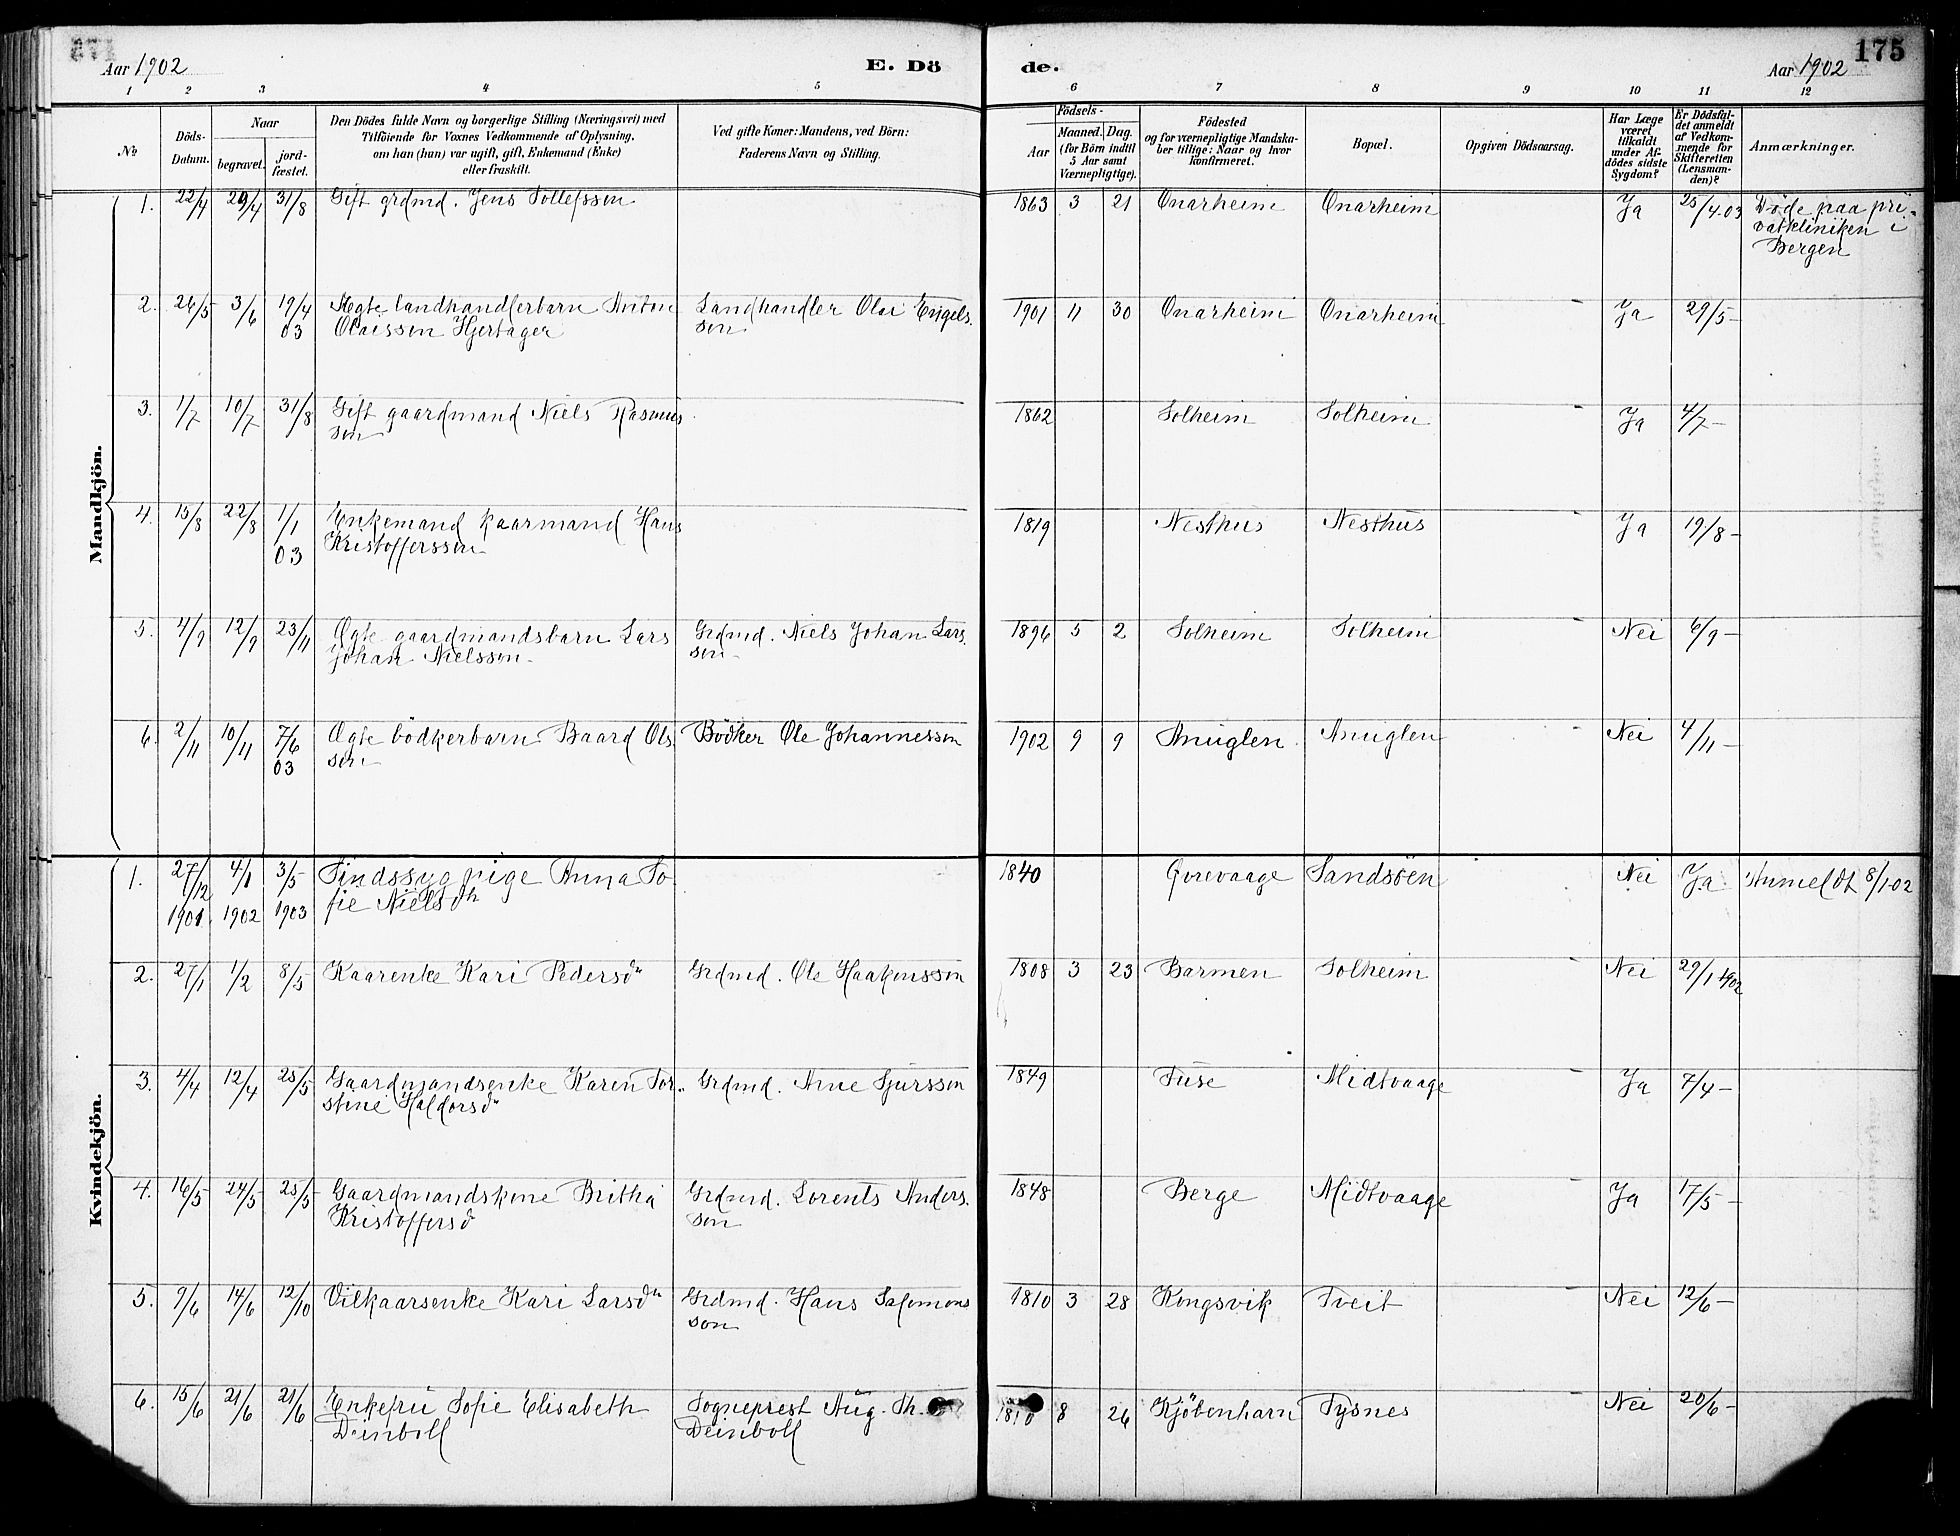 175
Aar 1902
E. Dö de.
Aar 1902
1 2 3 4 5 6 7 8 9 10 11 12
No
Döds-Datum.
Naar
begravet.
jord-fæstet.
Den Dödes fulde Navn og borgerlige Stilling (Næringsvei) med
Tilföiende for Voxnes Vedkommende af Oplysning,
om han (hun) var ugift, gift, Enkemand (Enke)
eller fraskilt.
Ved gifte Koner: Mandens, ved Börn:
Faderens Navn og Stilling.
Födsels-
Aar
Maaned. Dag.
(for Börn indtil
5 Aar samt
Værnepligtige).
Födested
og for værnepligtige Mandska-
ber tillige: Naar og hvor
konfirmeret.
Bopæl.
Opgiven Dödsaarsag.
Har Læge
været
tilkaldt
under Af-
dödes sidste
Sygdom?
Er Dödsfal-
det anmeldt
af Vedkom-
mende for
Skifteretten
(Lensman-
den)?
Anmærkninger.
Mandkjön.
1. 22/4 29/4 31/8 Gift grdmd. Jens Tollefssen 1863 3 21 Onarheim Onarheim - Ja 25/4.03 Döde paa pri-
vatkliniken i
Bergen
2. 26/5 3/6 19/4 Ægte landhandlerbarn Anton Landhandler Olai Engels- 1901 11 30 Onarheim Onarheim - Ja 29/5-
03 Olaissen Hjertager sen
3. 1/7 10/7 31/8 Gift gaardmand Niels Rasmus 1862 Solheim Solheim - Ja 4/7-
sen
4. 15/8 22/8 1/1 Enkemand kaarmand Hans 1819 Nesthus Nesthus - Ja 19/8-
03 Kristofferssen
5. 4/9 12/9 23/11 Ægte gaardmandsbarn Lars Grdmd. Niels Johan Lars 1896 5 2 Solheim Solheim - Nei 6/9-
Johan Nielssen sen
6. 2/11 10/11 7/6 Ægte bödkerbarn Baard Ols Bödker Ole Johannessen 1902 9 9 Anuglen Anuglen - Nei 4/11-
03 sen
Kvindekjön.
1. 27/12 4/1 3/5 Sindssyg pige Anna So 1840 Gorevaage Sandsöen - Nei Ja Anmeldt 8/1.02
1901 1902 1903 fie Nielsdn
2. 27/1 1/2 8/5 Kaarenke Kari Pedersdn Grdmd. Ole Haakonssen 1808 3 23 Barmen Solheim - Nei 29/1 1902
3. 4/4 12/4 25/5 Gaardmandsenke Karen Tor- Grdmd. Arne Sjurssen 1849 Tuse Midtvaage - Ja 7/4-
stine Haldorsdn
4. 16/5 24/5 25/5 Gaardmandskone Britha Grdmd. Lorents Anders- 1848 Berge Midtvaage - Ja 17/5-
Kristoffersd sen
5. 9/6 14/6 12/10 Vilkaarsenke Kari Larsdn Grdmd. Hans Salomons 1810 3 28 Kongsvik Tveit - Nei 12/6-
son
6. 15/6 21/6 21/6 Enkefru Sofie Elisabeth Sogneprest Aug. Th. 1810 8 26 Kjöbenhavn Tysnes - Nei 20/6-
Deinboll Deinboll